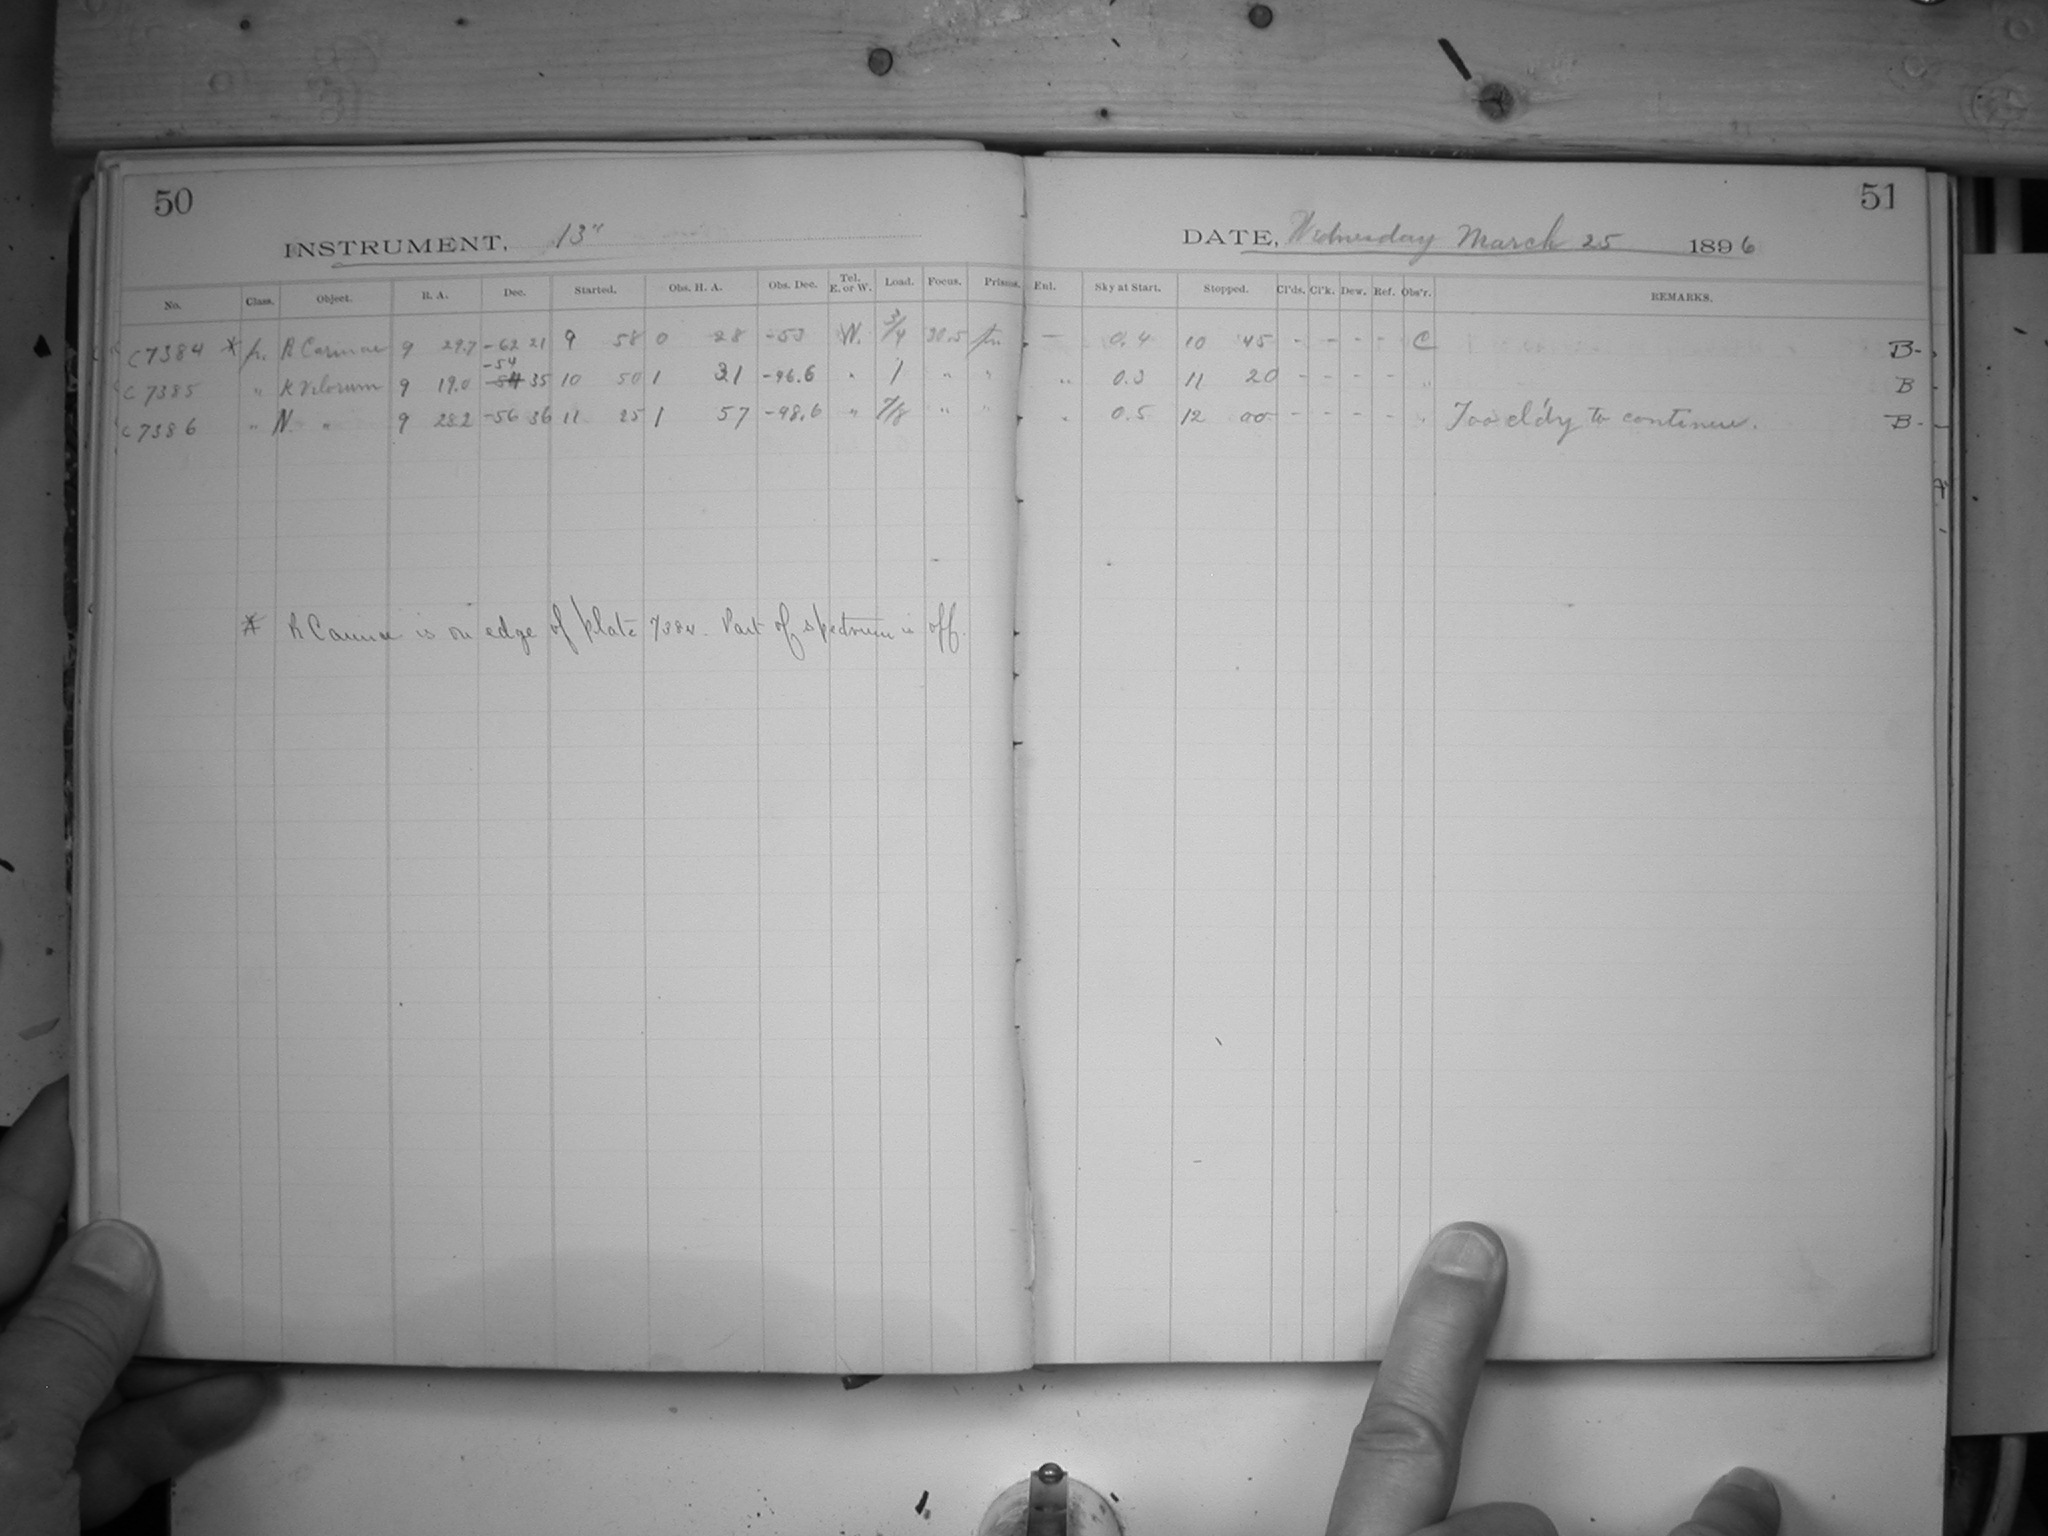 50
51
INSTRUMENT, 13"
DATE, Wednesday March 25 1896
No. Class. Object. R. A. Dec. Started. Obs. H. A. Obs. Dec. Tel. E. or W. Load. Focus. Prisms. Enl. Sky at Start. Stopped. Cl'ds. Cl'k. Dew. Ref. Obs'r. REMARKS.
C 7384 * pr. R Carinae 9 29.7 -62 21 9 58 0 28 -53 W. 3/4 30.5 pr. — 0.4 10 45 - - - - C B-
-54
C 7385 " K Velorum 9 19.0 -54 35 10 50 1 31 -46.6 " 1 " " " 0.3 11 20 - - - - " B
C 7386 " N. " 9 28.2 -56 36 11 25 1 57 -48.6 " 7/8 " " " 0.5 12 00 - - - - " Too cl'dy to continue. B-
* R Carinae is on edge of plate 7384. Part of spectrum is off.